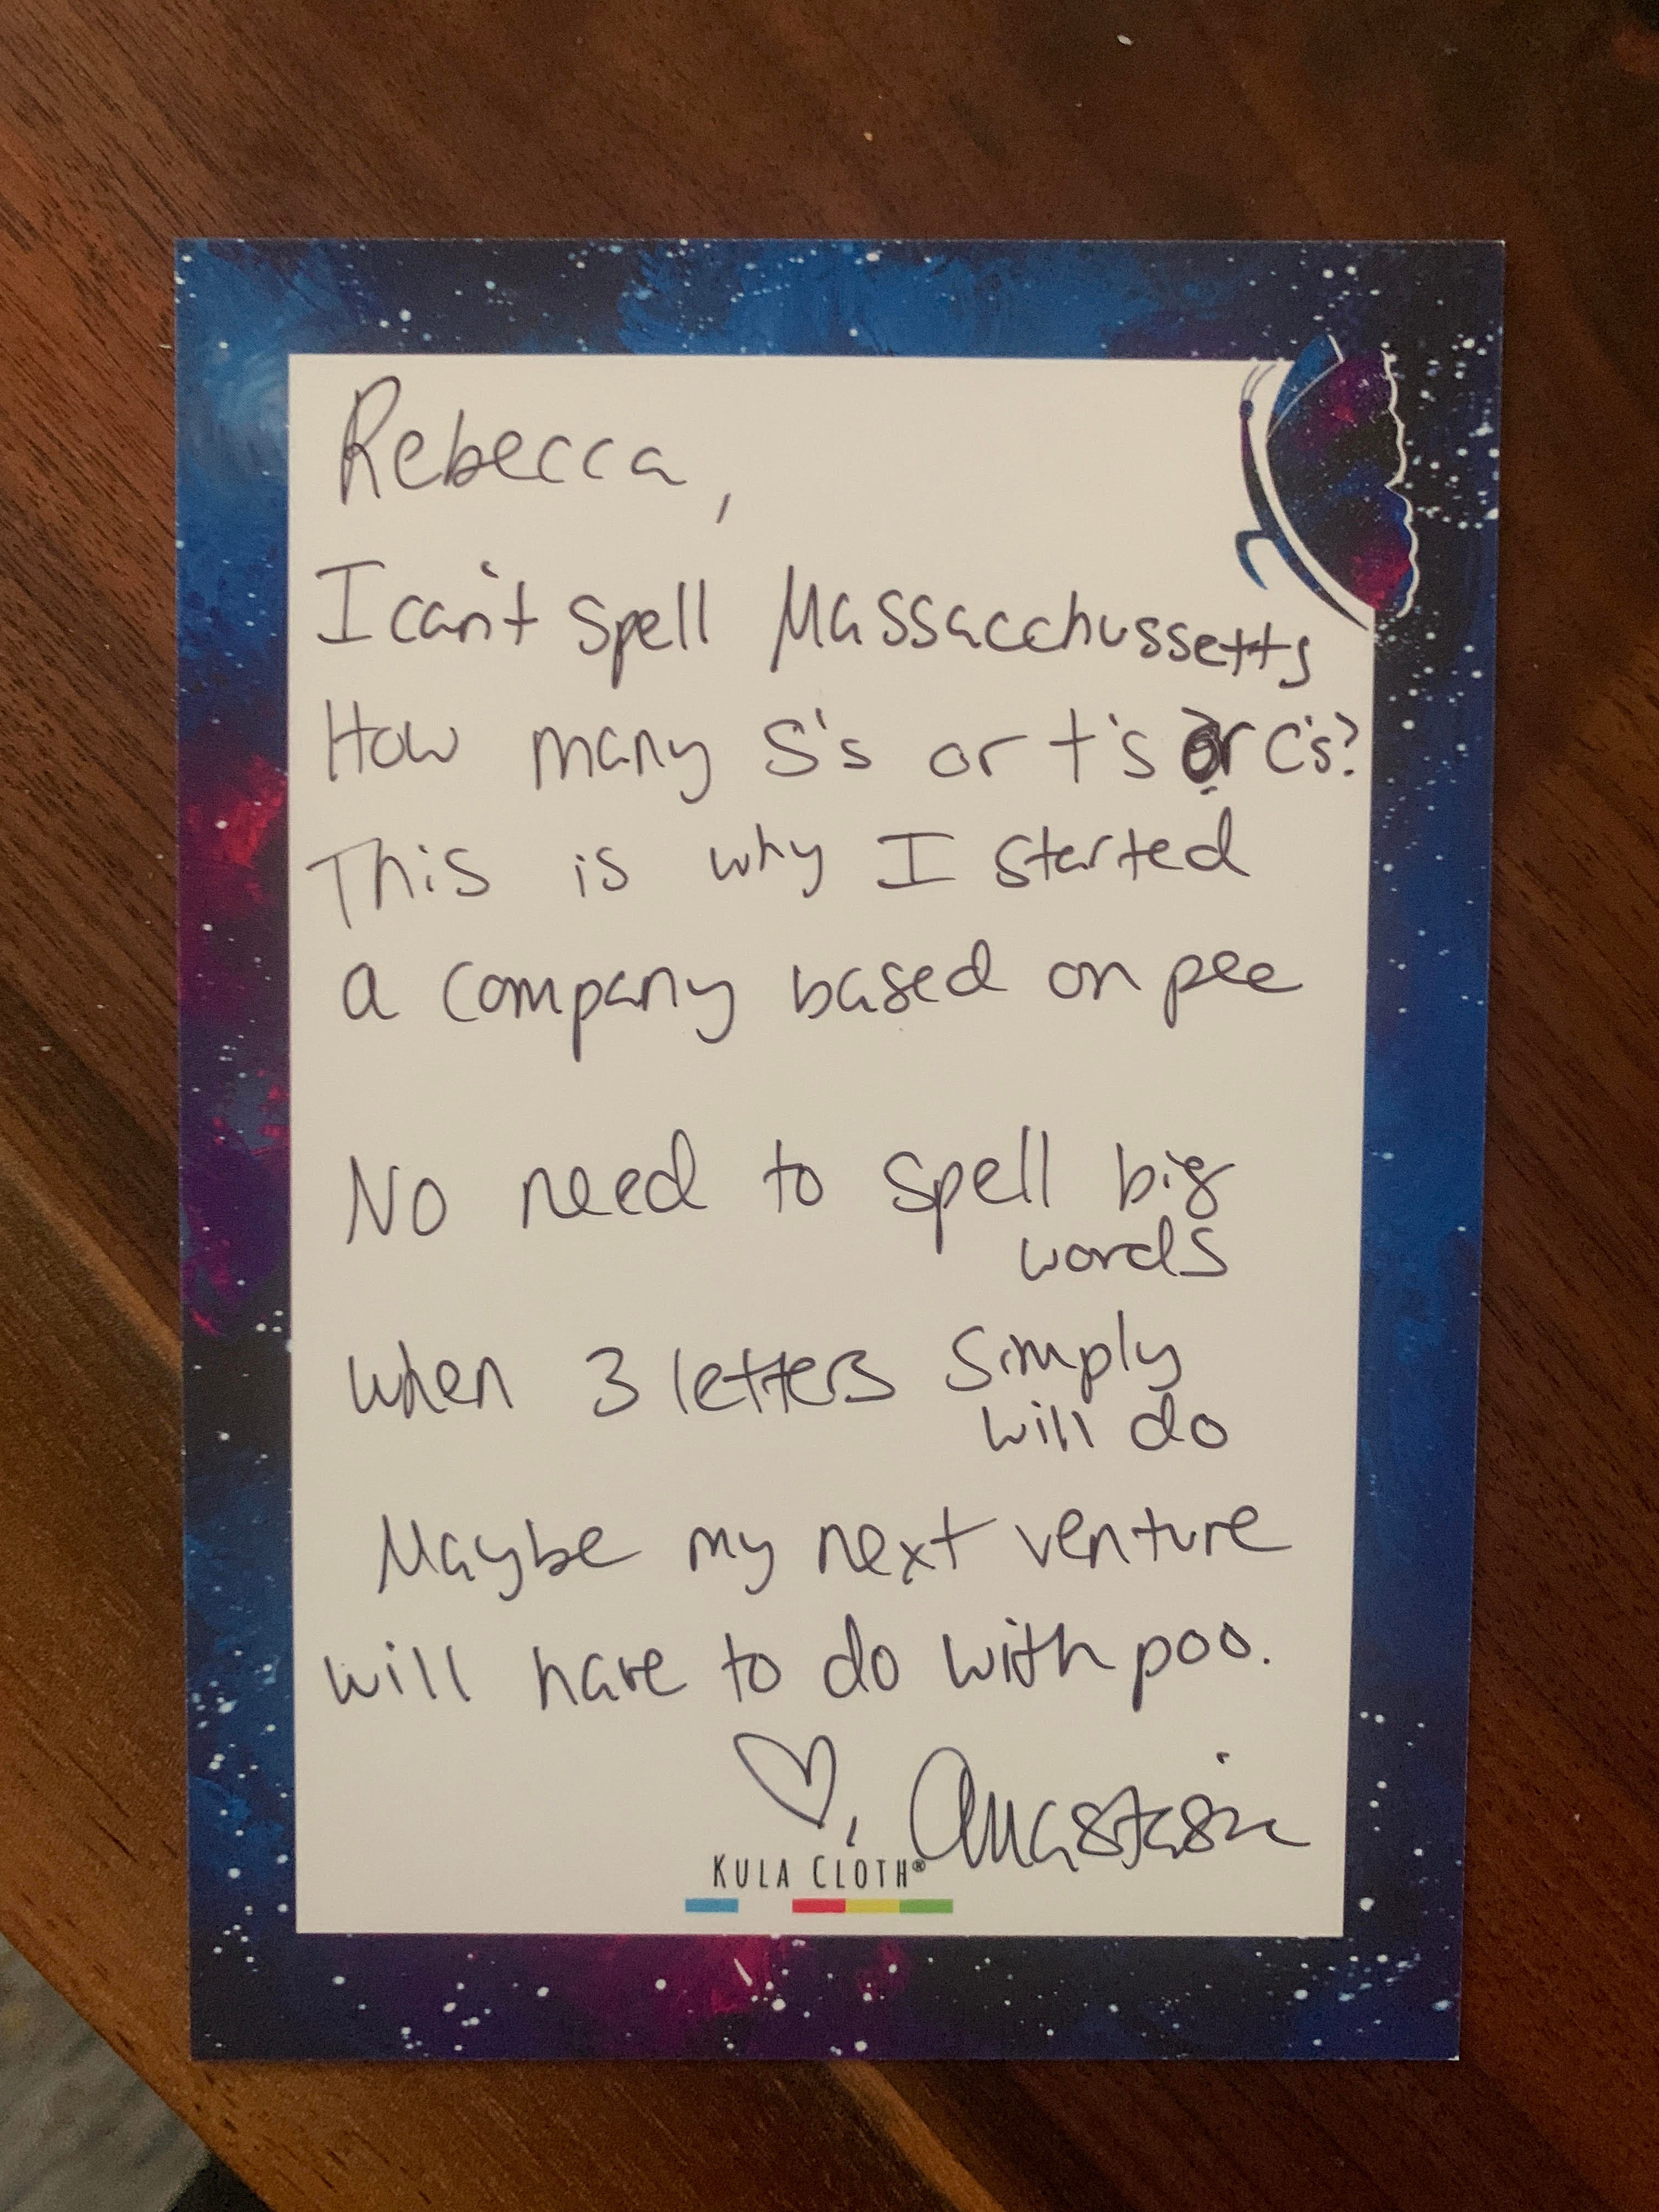 Rebecca,
I can't spell Massacchussetts
How many S's or t's or c's?
This is why I started
a company based on pee
No need to spell big
words
when 3 letters simply
will do
Maybe my next venture
will have to do with poo.
♡, Anastasia
KULA CLOTH®